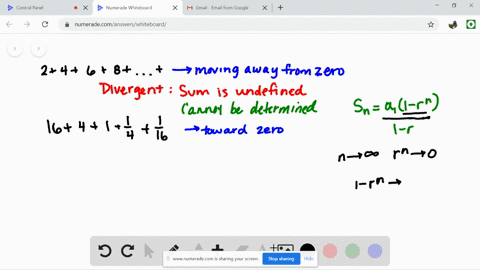 Control Panel
Numerade Whiteboard
Gmail - Email from Google
numerade.com/answers/whiteboard/
2+4+6+8+...+ → moving away from zero
Divergent: Sum is undefined
Cannot be determined
16+4+1+1/4+1/16 → toward zero
Sn = a1(1-r^n)/1-r
n→∞ r^n→0
1-r^n→
www.numerade.com is sharing your screen.
Stop sharing
Hide